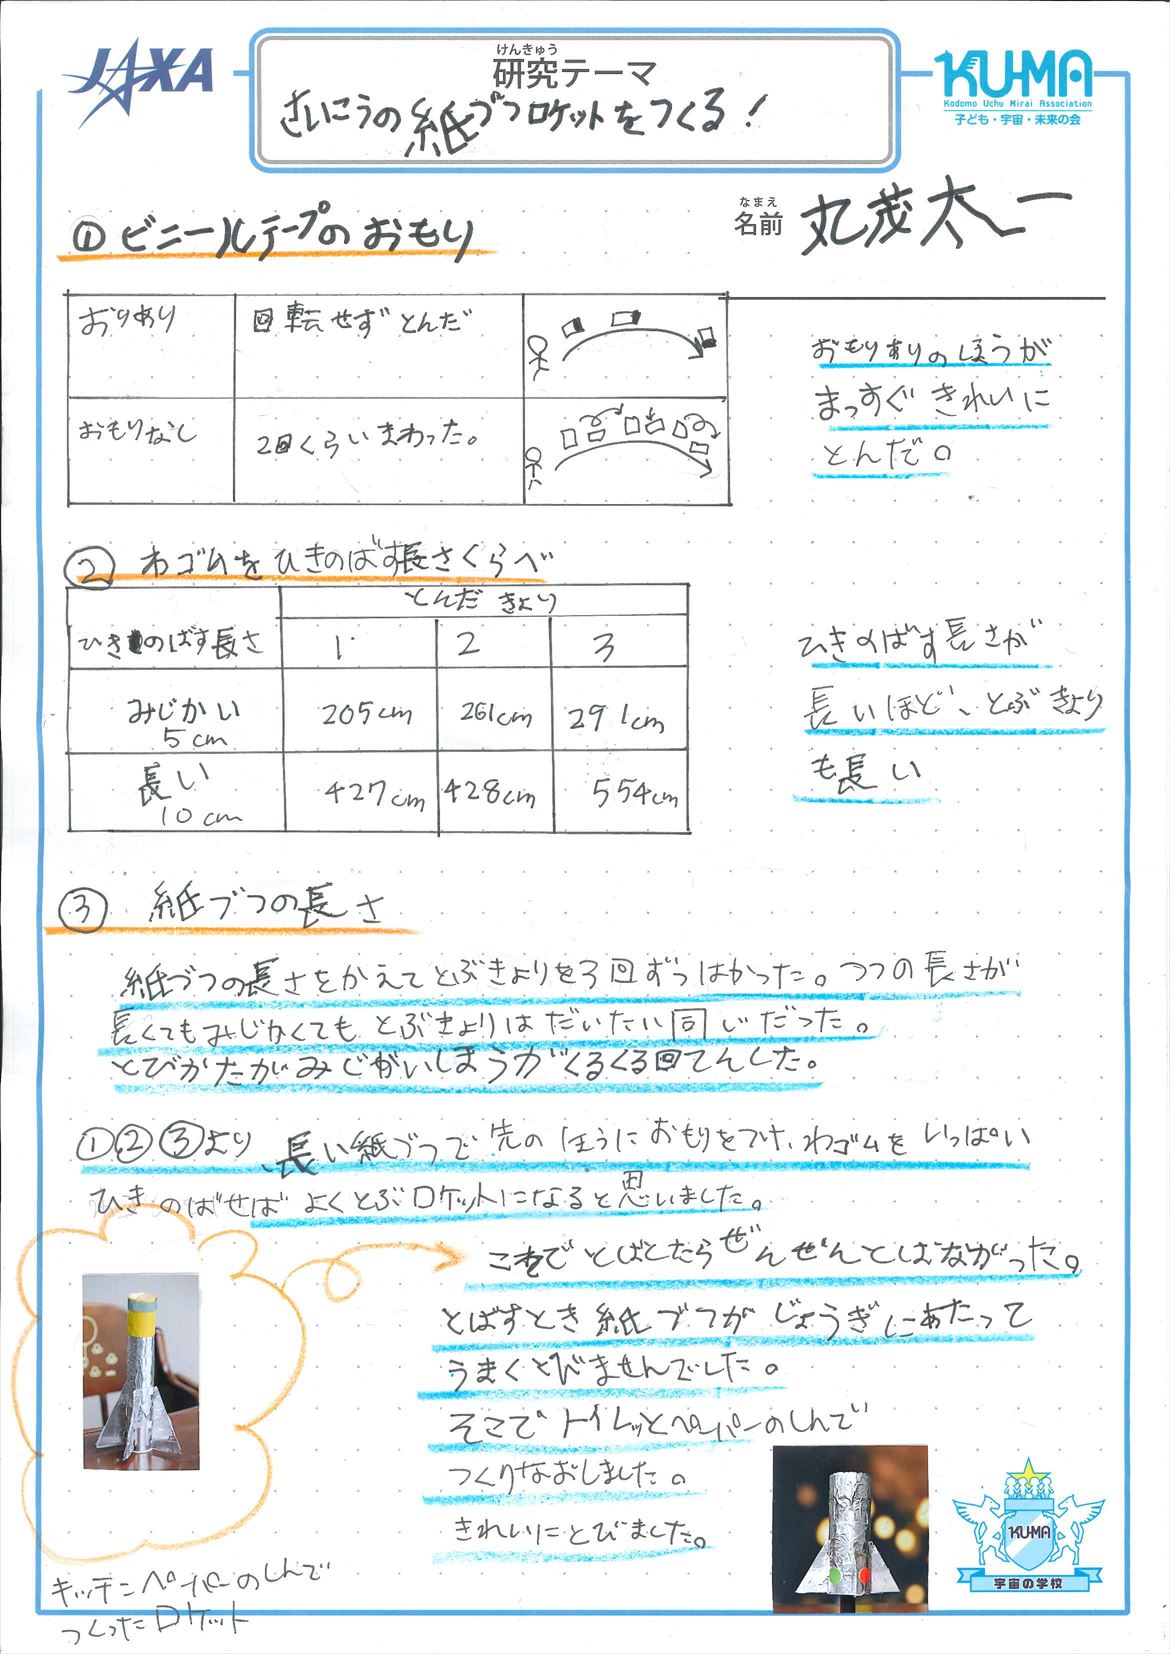 JAXA
けんきゅう
研究テーマ
KU-MA
Kodomo Uchu Mirai Association
子ども・宇宙・未来の会
さいこうの紙づつロケットをつくる!
なまえ
名前 丸茂太一
① ビニールテープのおもり
おりあり 回転せずとんだ
おもりなし 2回くらいまわった。
おもりありのほうが
まっすぐきれいに
とんだ。
② わゴムをひきのばす長さくらべ
とんだきょり
ひきのばす長さ 1 2 3
みじかい
5cm
205cm 261cm 291cm
長い
10cm
427cm 428cm 554cm
ひきのばす長さが
長いほど、とぶきょり
も長い
③ 紙づつの長さ
紙づつの長さをかえてとぶきょりを3回ずつはかった。つつの長さが
長くてもみじかくてもとぶきょりはだいたい同じだった。
とびかたがみじかいほうがくるくる回てんした。
①②③より、長い紙づつで先のほうにおもりをつけ、わゴムをいっぱい
ひきのばせばよくとぶロケットになると思いました。
これでとばとたらぜんぜんとばなかった。
とばすとき紙づつがじょうぎにあたって
うまくとびませんでした。
そこでトイレッとペーパーのしんで
つくりなおしました。
きれいにとびました。
キッチンペーパーのしんで
つくったロケット
KU-MA
宇宙の学校